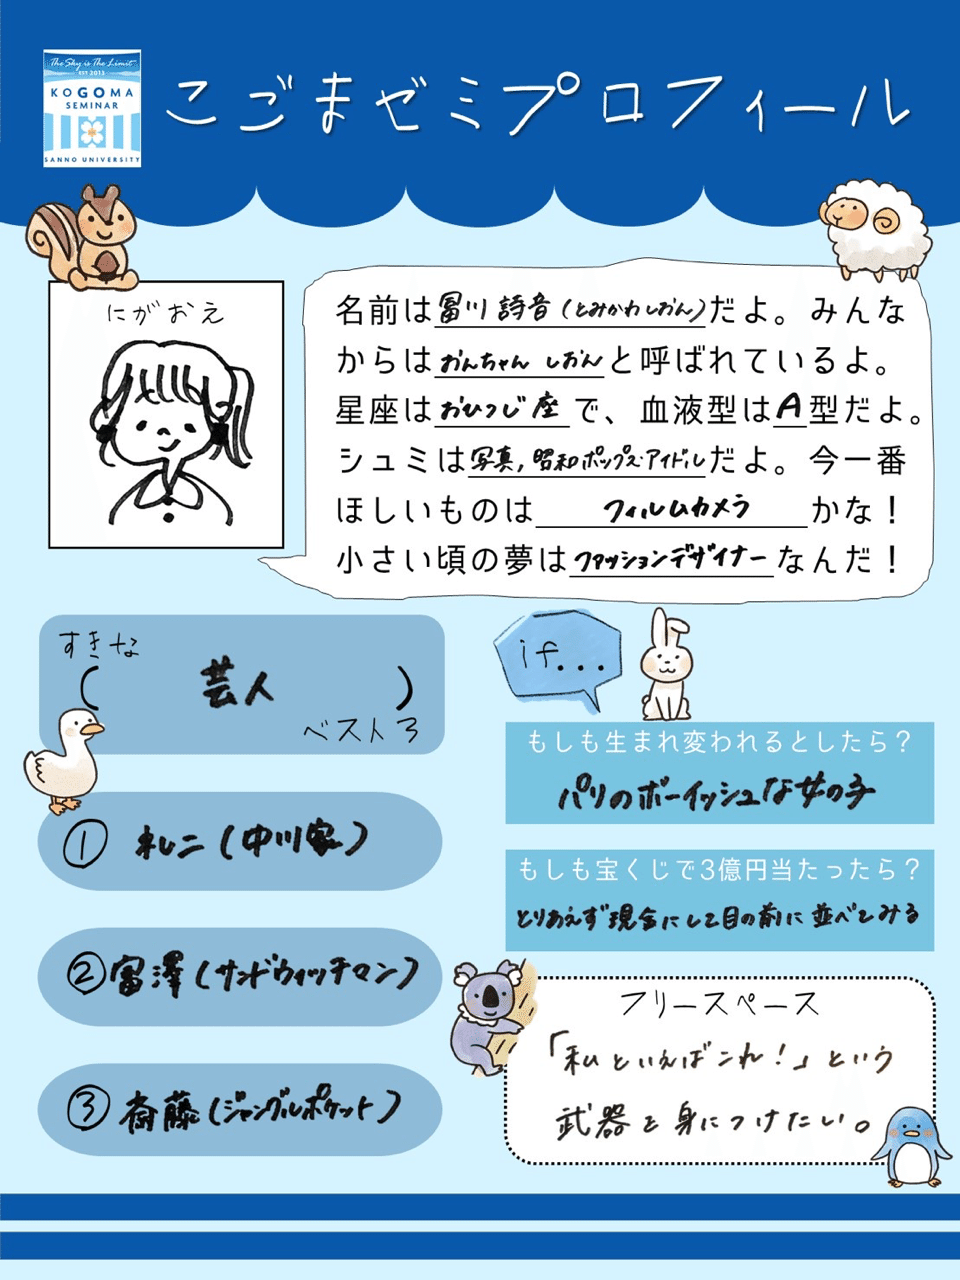 The Sky is The Limit
EST 2013
KOGOMA
SEMINAR
SANNO UNIVERSITY
こごまゼミプロフィール
にがおえ
名前は冨川詩音(とみかわしおん)だよ。みんな
からはおんちゃん しおんと呼ばれているよ。
星座はおひつじ座で、血液型はA型だよ。
シュミは写真,昭和ポップス・アイドルだよ。今一番
ほしいものはフィルムカメラかな!
小さい頃の夢はファッションデザイナーなんだ!
すきな
(芸人)
ベスト3
①礼二(中川家)
②富澤(サンドウィッチマン)
③斎藤(ジャングルポケット)
if...
もしも生まれ変われるとしたら?
パリのボーイッシュな女の子
もしも宝くじで3億円当たったら?
とりあえず現金にして目の前に並べてみる
フリースペース
「私といえばこれ!」という
武器を身につけたい。